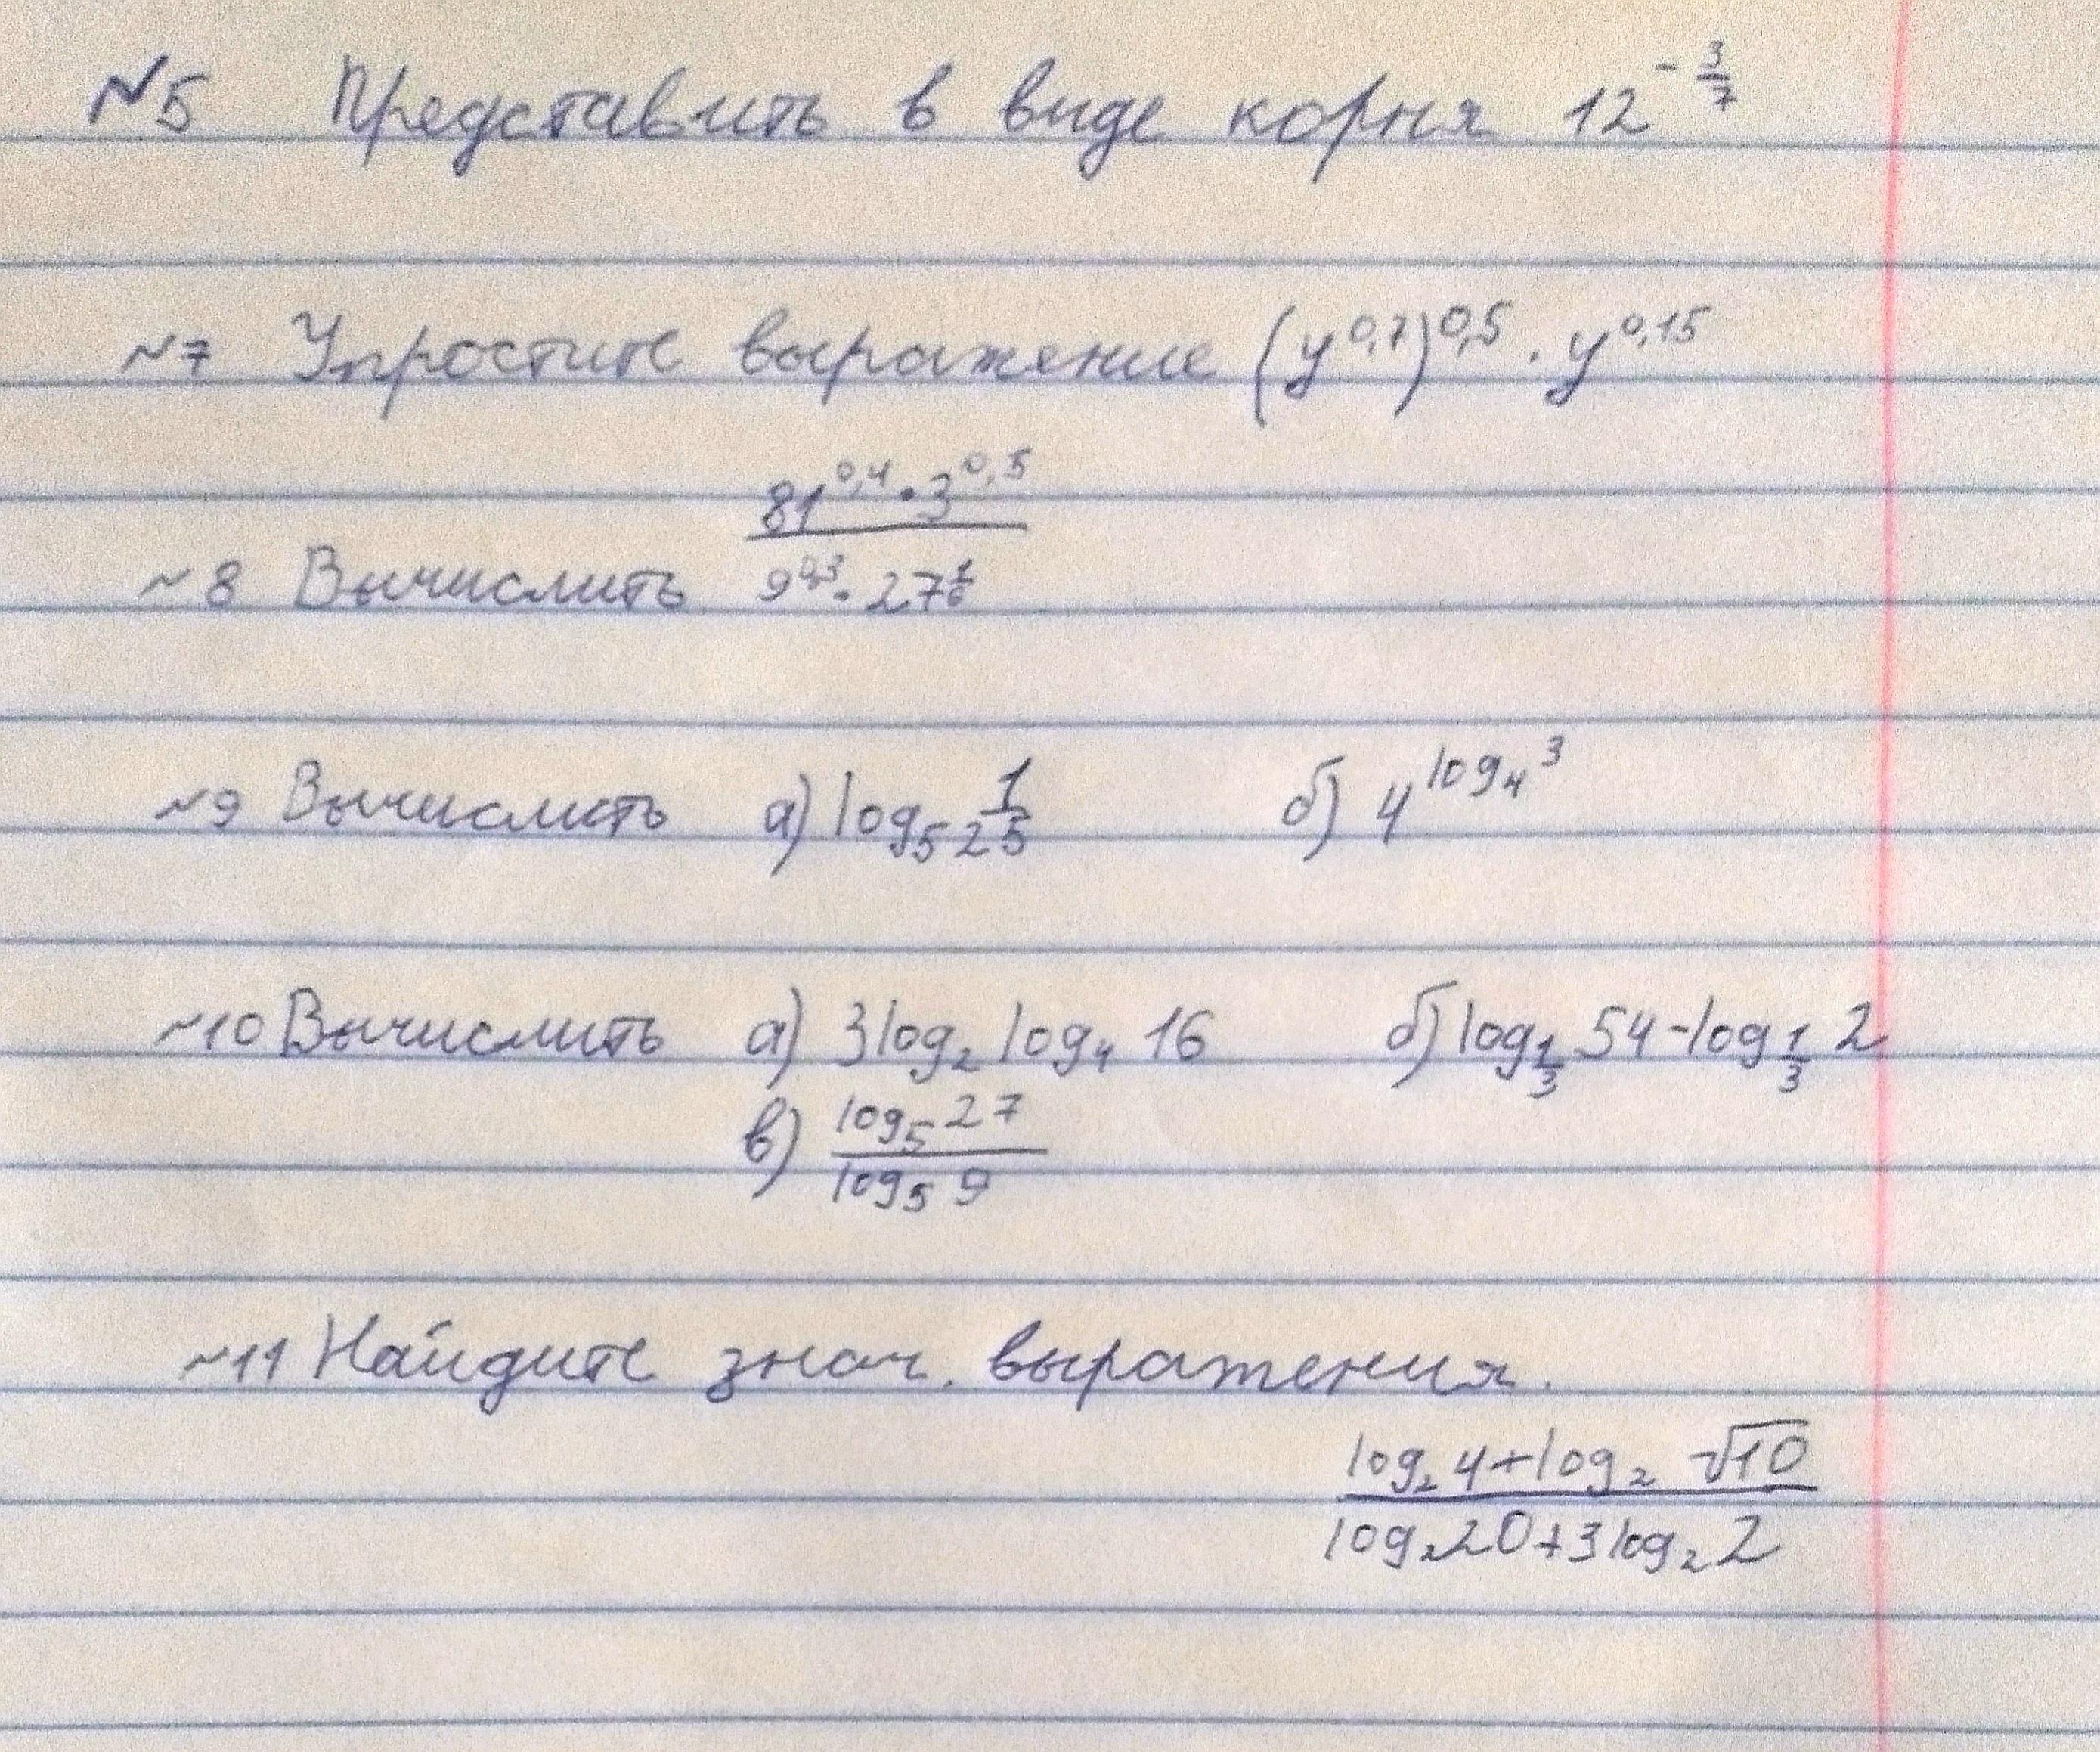 №5 Представить в виде корня 12^(-3/7)
~7 Упростите выражение (y^0,7)^0,5 · y^0,15
~8 Вычислить (81^0,4 · 3^0,5)/(9^0,3 · 27^(1/6))
~9 Вычислить а) log₅ 1/25 б) 4^(log₄ 3)
~10 Вычислить а) 3log₂ log₄ 16 б) log_(1/3) 54 - log_(1/3) 2
в) (log₅ 27)/(log₅ 9)
~11 Найдите знач. выражения.
(log₂ 4 + log₂ √10)/(log₂ 20 + 3log₂ 2)